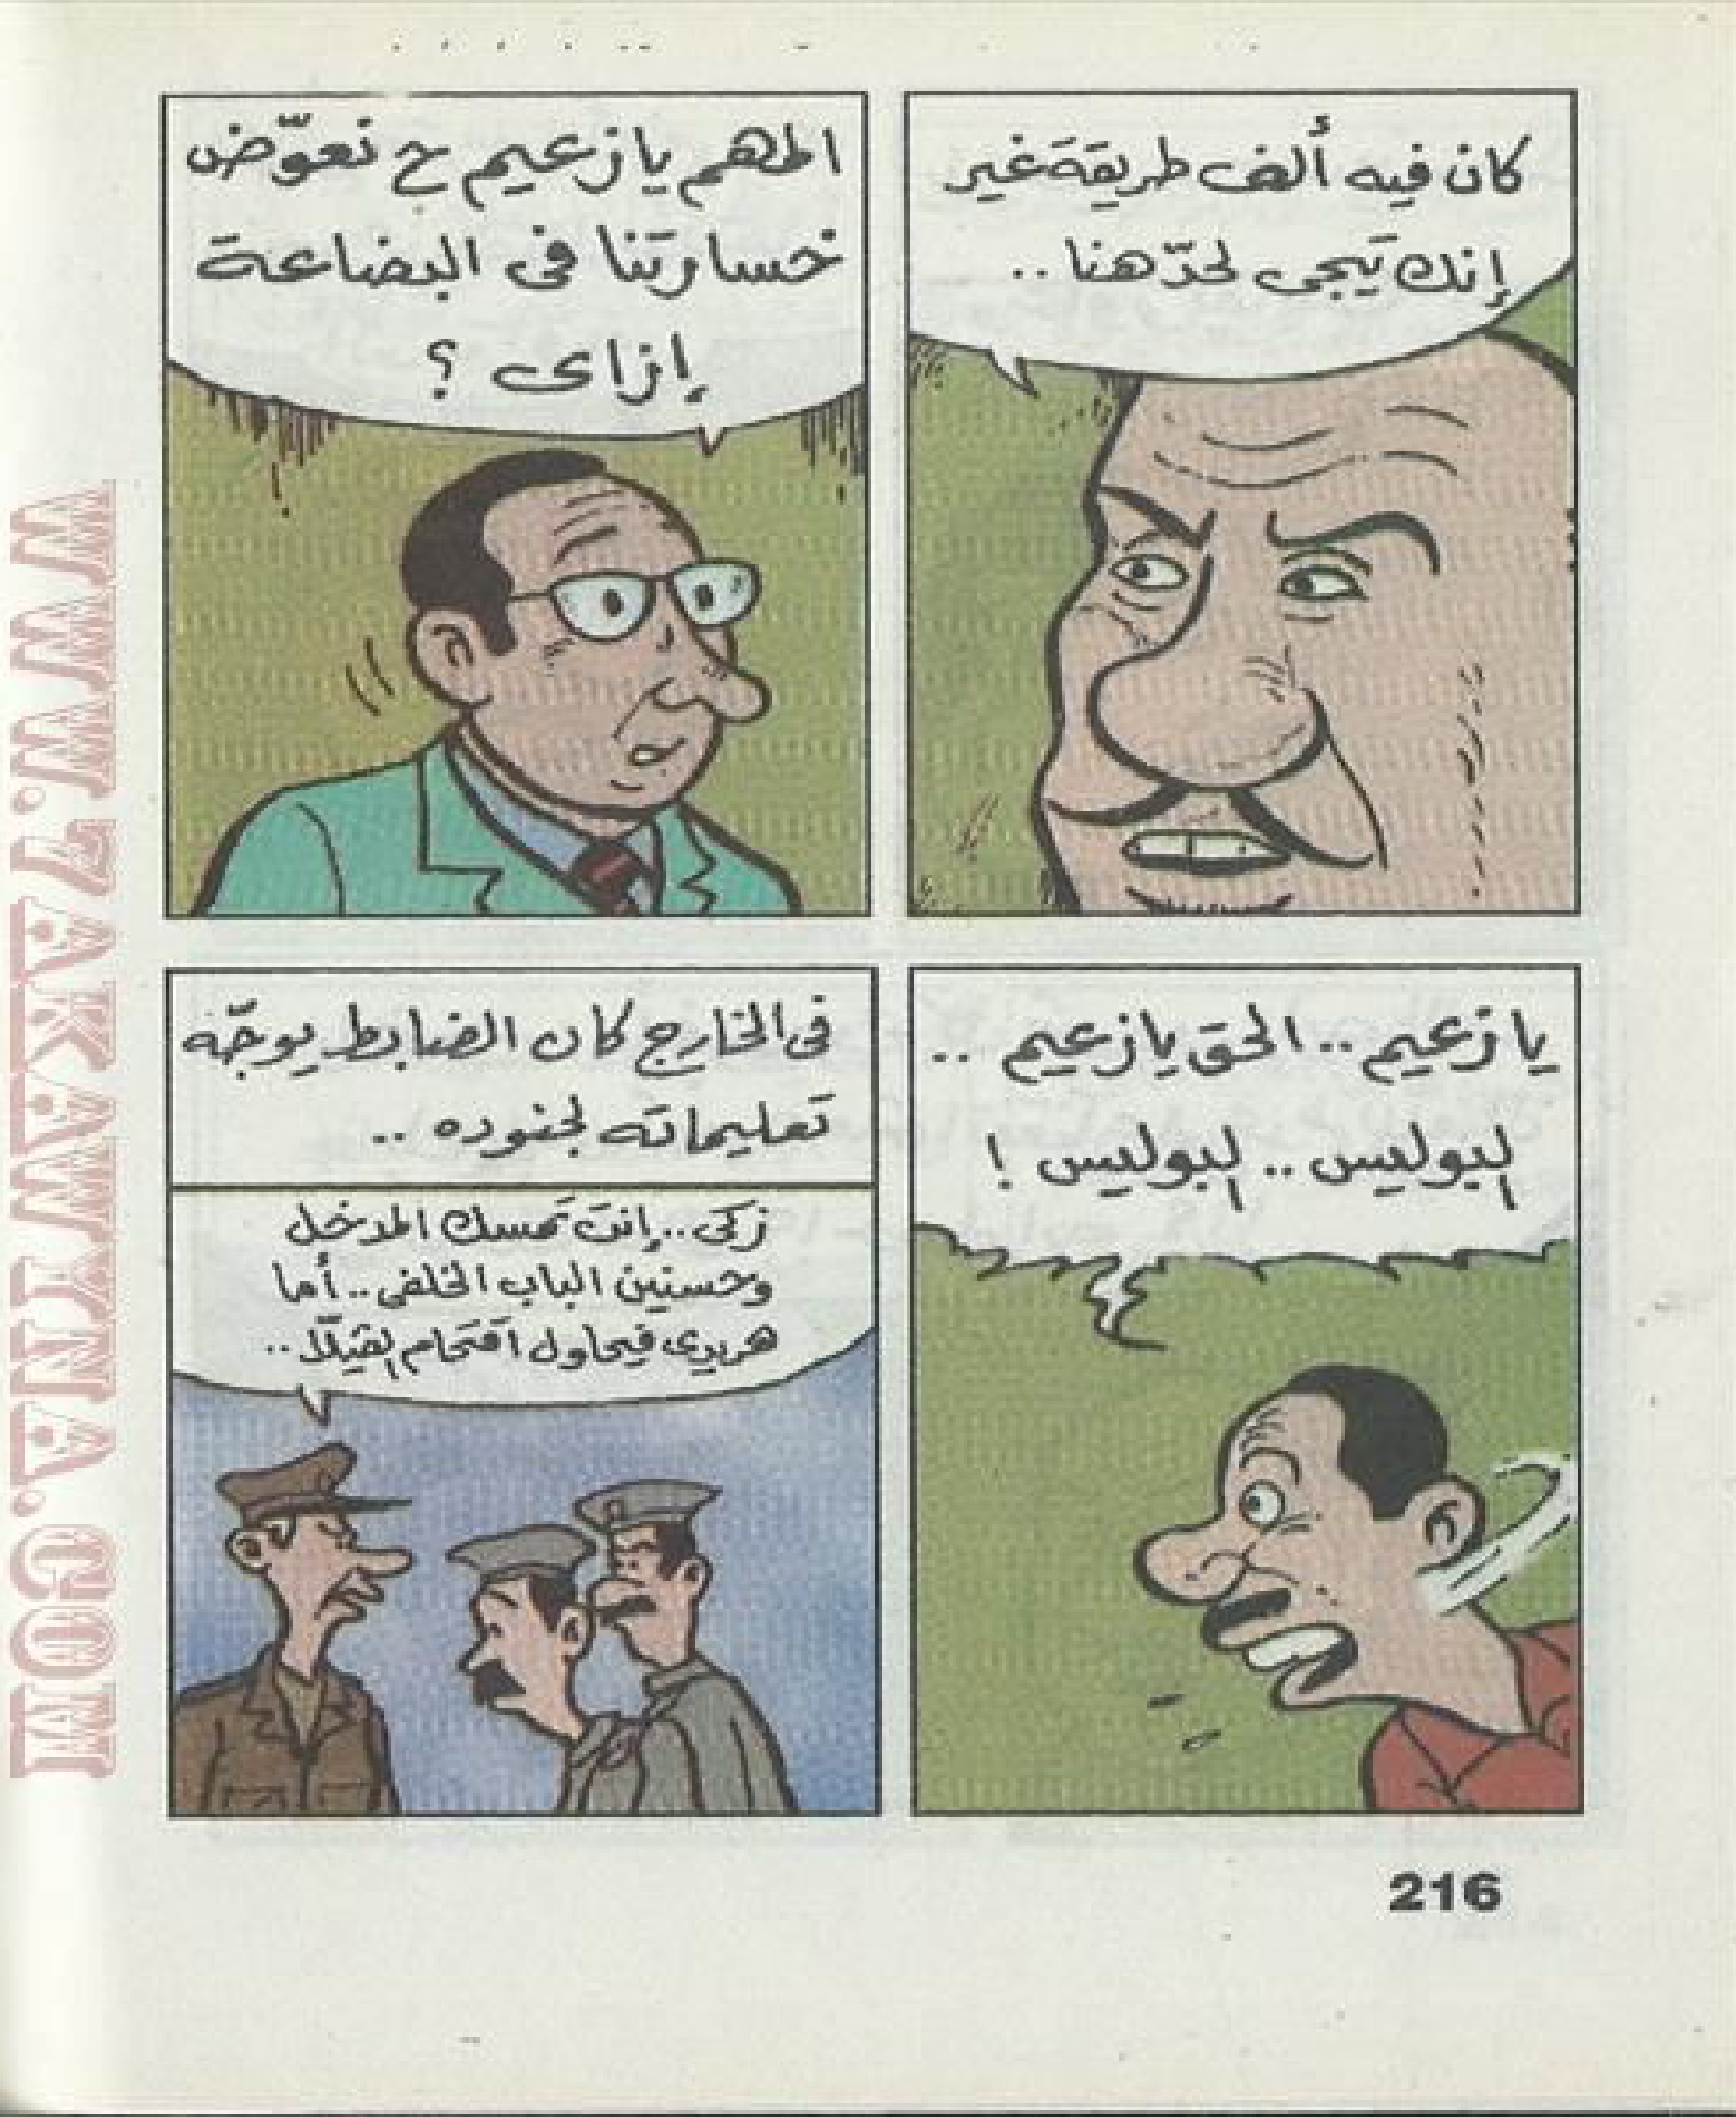 كان فيه ألف طريقة غير
إنك تيجى لحدّ هنا ..
المهم يا زعيم ح نعوّض
خسارتنا فى البضاعة
إزاى ؟
يا زعيم .. الحق يا زعيم ..
البوليس .. البوليس !
فى الخارج كان الضابط يوجّه
تعليماته لجنوده ..
زكى .. إنت تمسك المدخل
وحسنين الباب الخلفى .. أما
هريدى فيحاول اقتحام الڤيلّا ..
216
WWW.ZAKAWYNA.COM